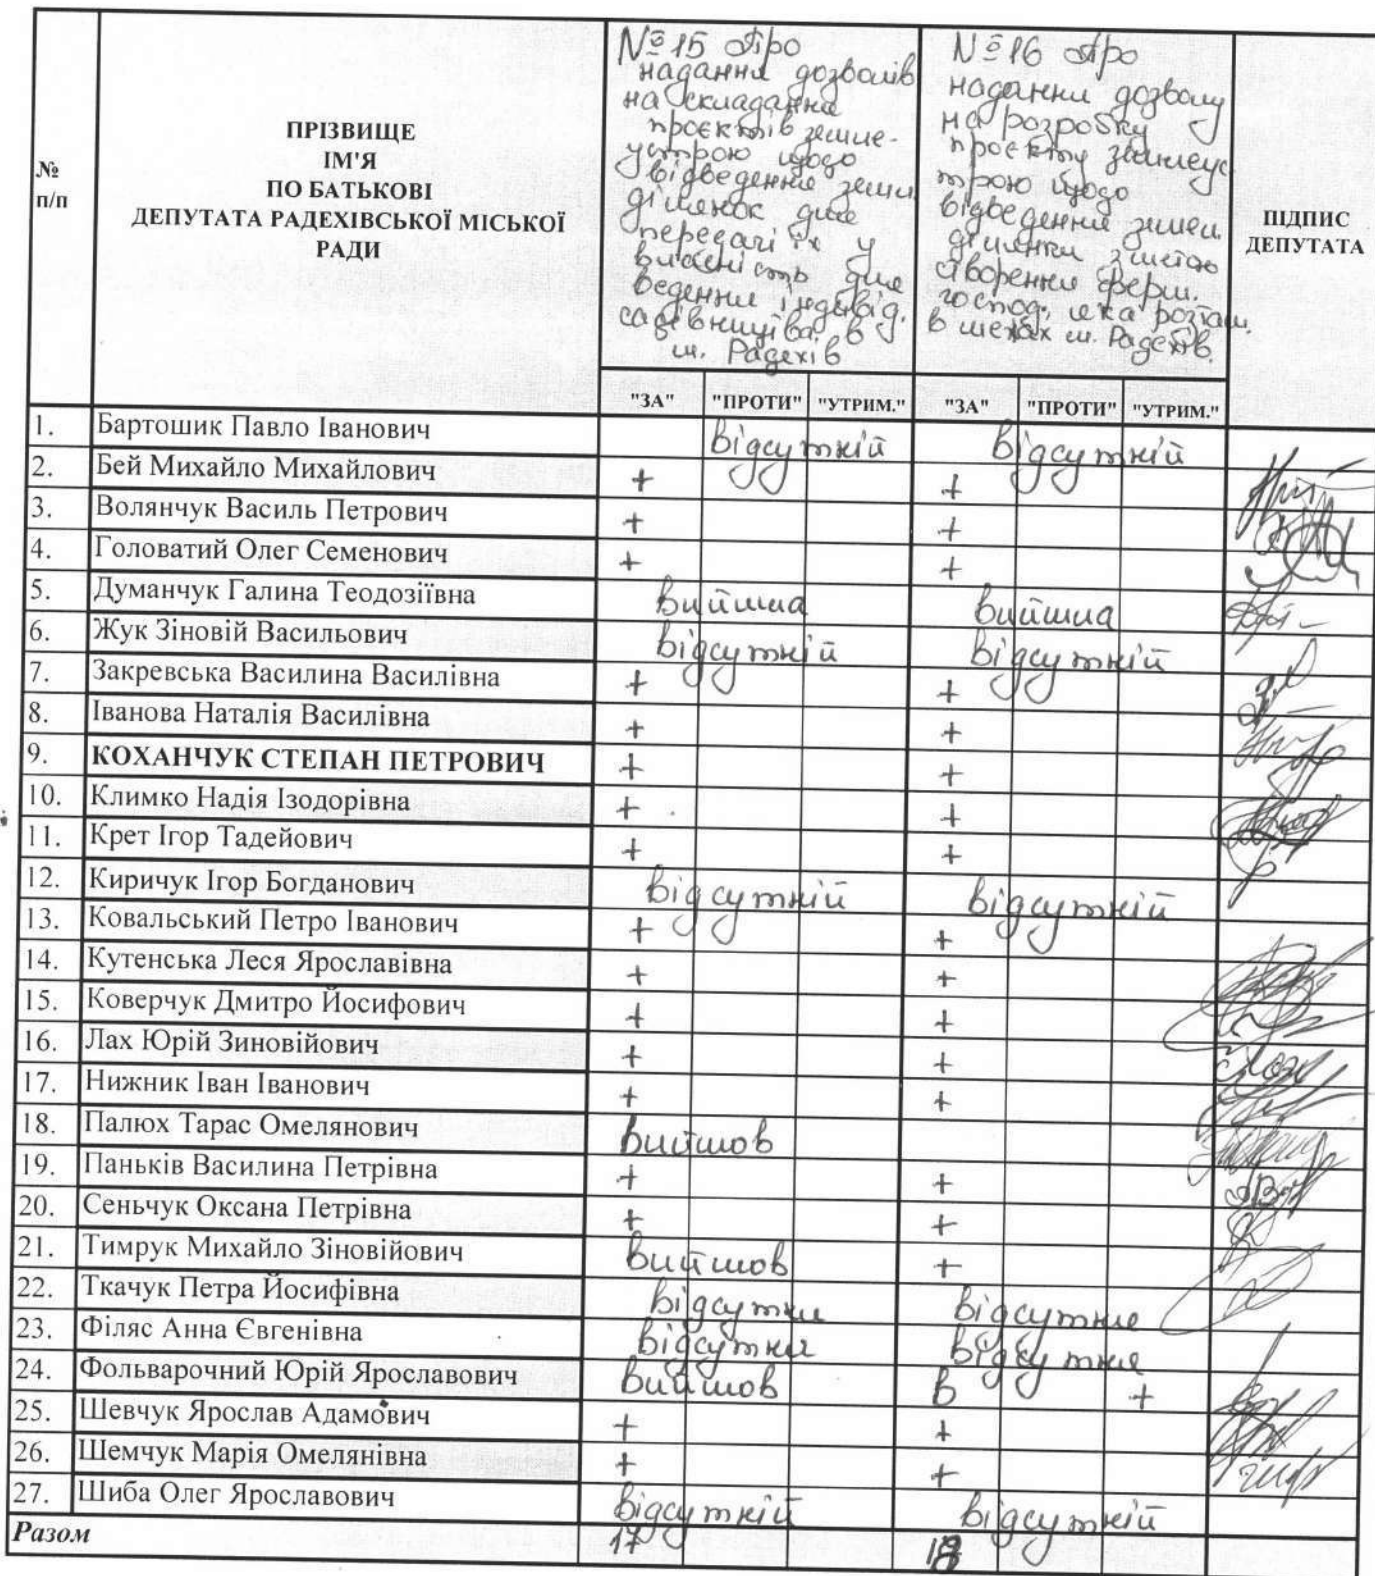 №
п/п
ПРІЗВИЩЕ
ІМ'Я
ПО БАТЬКОВІ
ДЕПУТАТА РАДЕХІВСЬКОЇ МІСЬКОЇ
РАДИ
№ 15 Про
надання дозволів
на складання
проєктів землеустрою щодо
відведення земл.
ділянок для
передачі їх у
власність для
ведення індивід.
садівництва, в
м. Радехів
№ 16 Про
надання дозволу
на розробку
проєкту землеус
трою щодо
відведення земел.
ділянки з метою
створення ферм.
господ. яка розташ.
в межах м. Радехів.
ПІДПИС
ДЕПУТАТА
"ЗА" "ПРОТИ" "УТРИМ." "ЗА" "ПРОТИ" "УТРИМ."
1. Бартошик Павло Іванович відсутній відсутній
2. Бей Михайло Михайлович + +
3. Волянчук Василь Петрович + +
4. Головатий Олег Семенович + +
5. Думанчук Галина Теодозіївна вийшла вийшла
6. Жук Зіновій Васильович відсутній відсутній
7. Закревська Василина Василівна + +
8. Іванова Наталія Василівна + +
9. КОХАНЧУК СТЕПАН ПЕТРОВИЧ + +
10. Климко Надія Ізодорівна + +
11. Крет Ігор Тадейович + +
12. Киричук Ігор Богданович відсутній відсутній
13. Ковальський Петро Іванович + +
14. Кутенська Леся Ярославівна + +
15. Коверчук Дмитро Йосифович + +
16. Лах Юрій Зиновійович + +
17. Нижник Іван Іванович + +
18. Палюх Тарас Омелянович вийшов
19. Паньків Василина Петрівна + +
20. Сеньчук Оксана Петрівна + +
21. Тимрук Михайло Зіновійович вийшов +
22. Ткачук Петра Йосифівна відсутня відсутня
23. Філяс Анна Євгенівна відсутня відсутня
24. Фольварочний Юрій Ярославович вийшов в +
25. Шевчук Ярослав Адамович + +
26. Шемчук Марія Омелянівна + +
27. Шиба Олег Ярославович відсутній відсутній
Разом 17 18